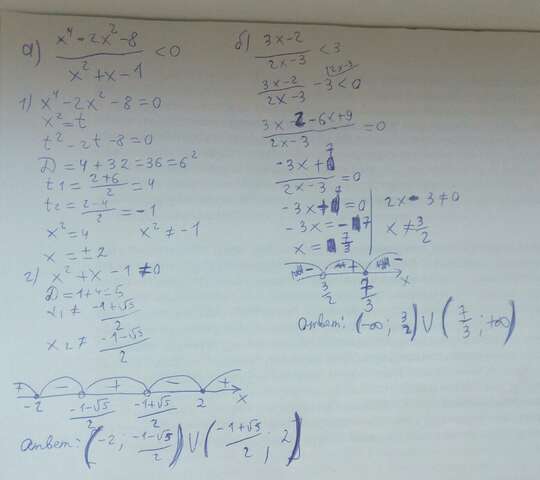 а) (x⁴ - 2x² - 8)/(x² + x - 1) < 0
1) x⁴ - 2x² - 8 = 0
x² = t
t² - 2t - 8 = 0
D = 4 + 32 = 36 = 6²
t1 = (2+6)/2 = 4
t2 = (2-4)/2 = -1
x² = 4 x² ≠ -1
x = ±2
2) x² + x - 1 ≠ 0
D = 1 + 4 = 5
x1 ≠ (-1+√5)/2
x2 ≠ (-1-√5)/2
- + - +
-2 (-1-√5)/2 (-1+√5)/2 2 x
Ответ: (-2; (-1-√5)/2) ∪ ((-1+√5)/2; 2)
б) (3x-2)/(2x-3) < 3
(3x-2)/(2x-3) - 3 < 0
(3x-2-6x+9)/(2x-3) = 0
(-3x+7)/(2x-3) = 0
-3x+7 = 0 2x - 3 ≠ 0
-3x = -7 x ≠ 3/2
x = 7/3
- + -
3/2 7/3 x
Ответ: (-∞; 3/2) ∪ (7/3; +∞)